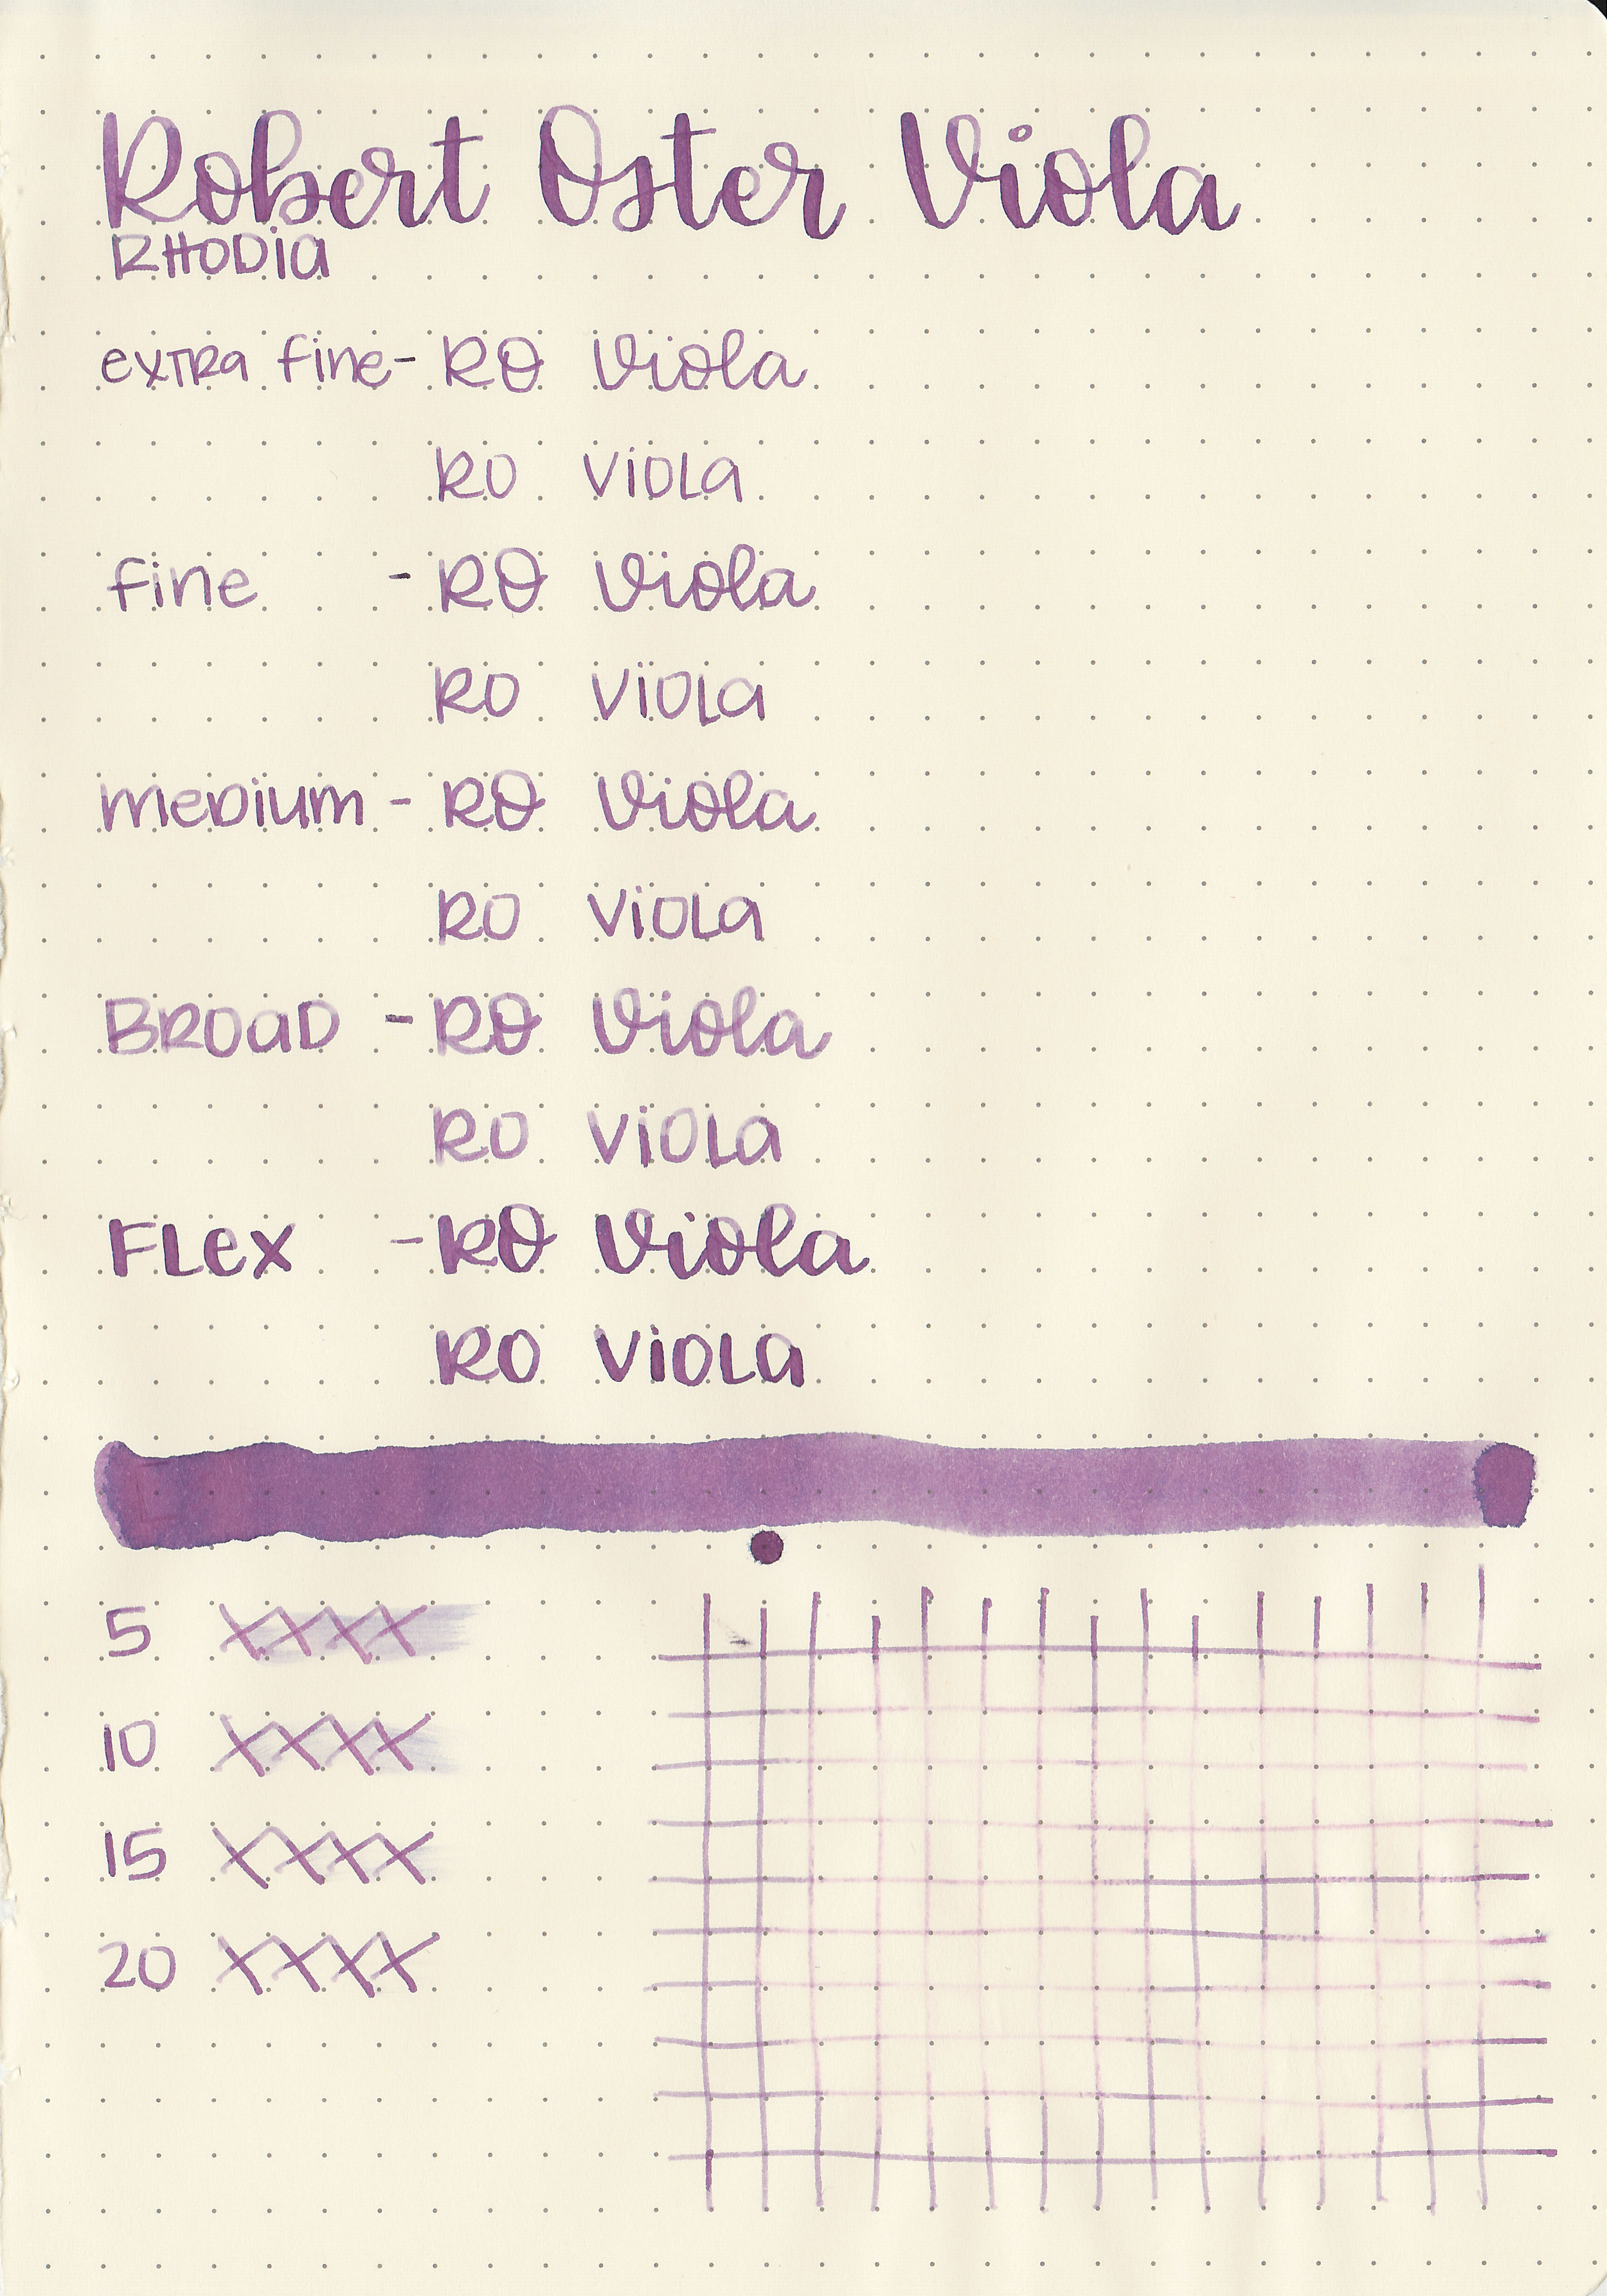 Robert Oster Viola
RHODia
extra fine - RO Viola
RO ViOLa
fine - RO Viola
RO ViOLa
meDium - RO Viola
RO ViOLa
BROaD - RO Viola
RO ViOLa
FLex - RO Viola
RO ViOLa
5 XXXX
10 XXXX
15 XXXX
20 XXXX